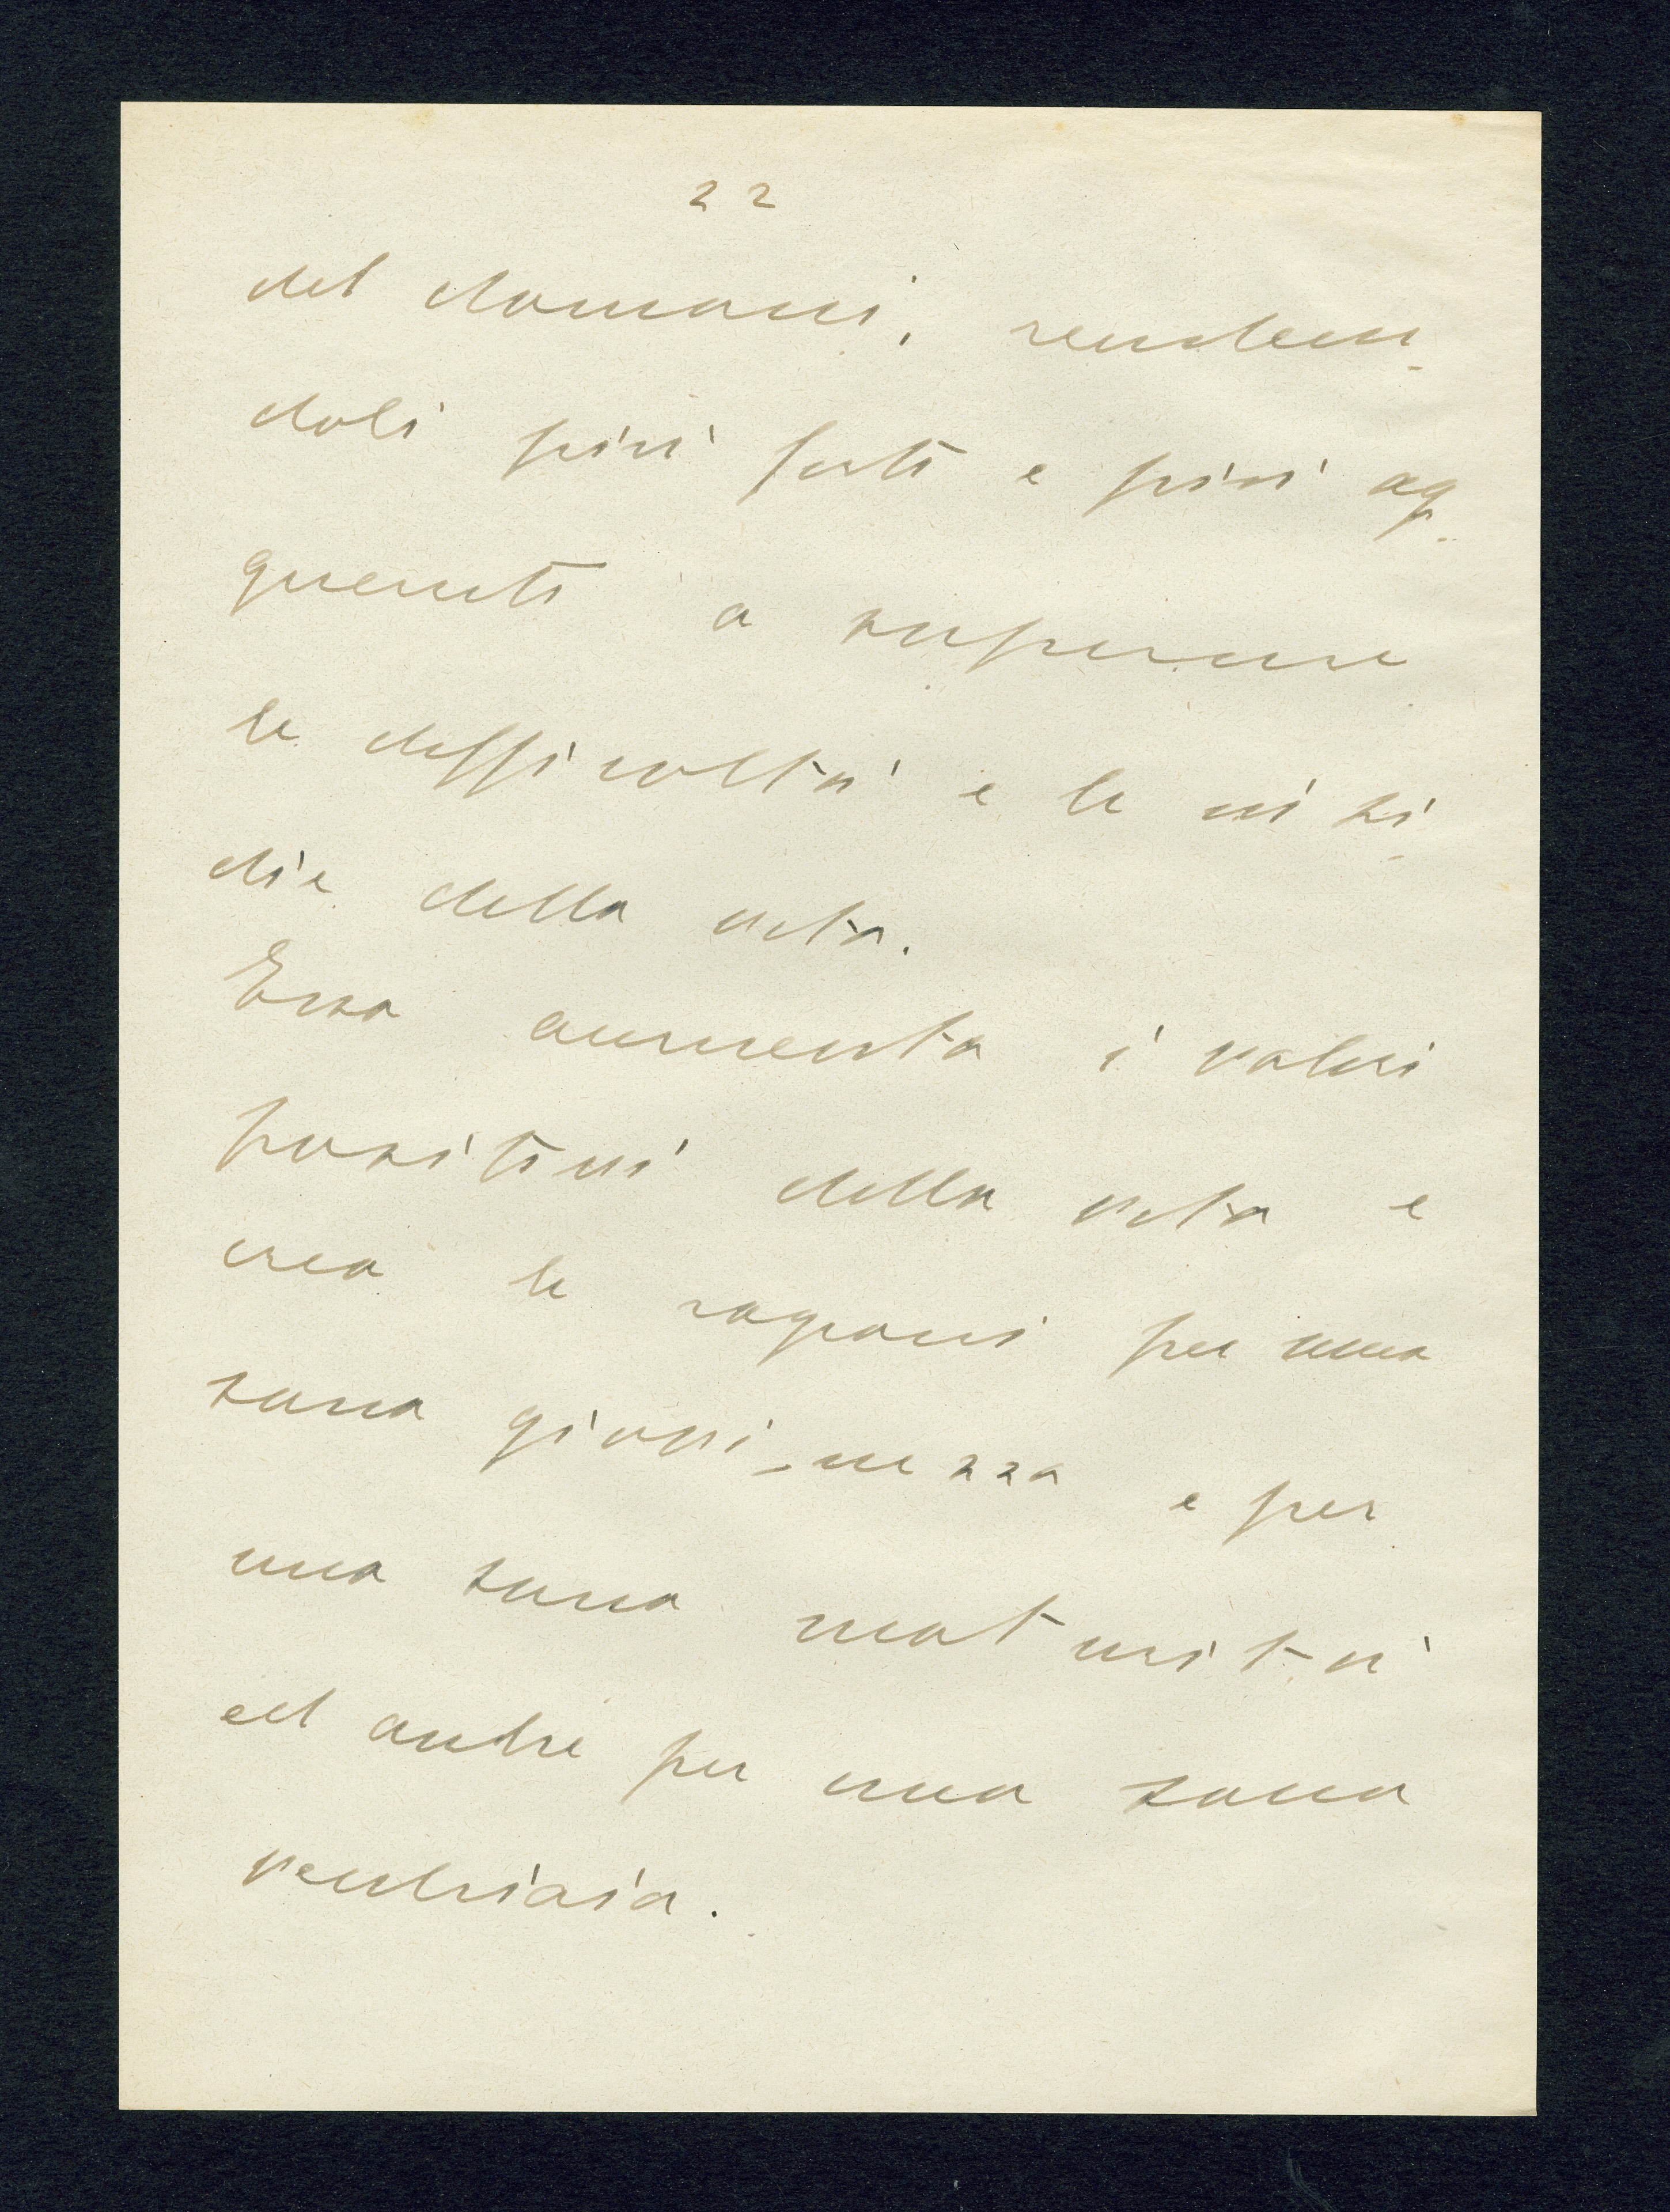 22
del domani, renden-
doli più forti e più ag-
guerriti a superare
le difficoltà e le insi-
die della vita.
Essa aumenta i valori
positivi della vita e
crea le ragioni per una
sana giovi-nezza e per
una sana maturità
ed anche per una sana
vecchiaia.